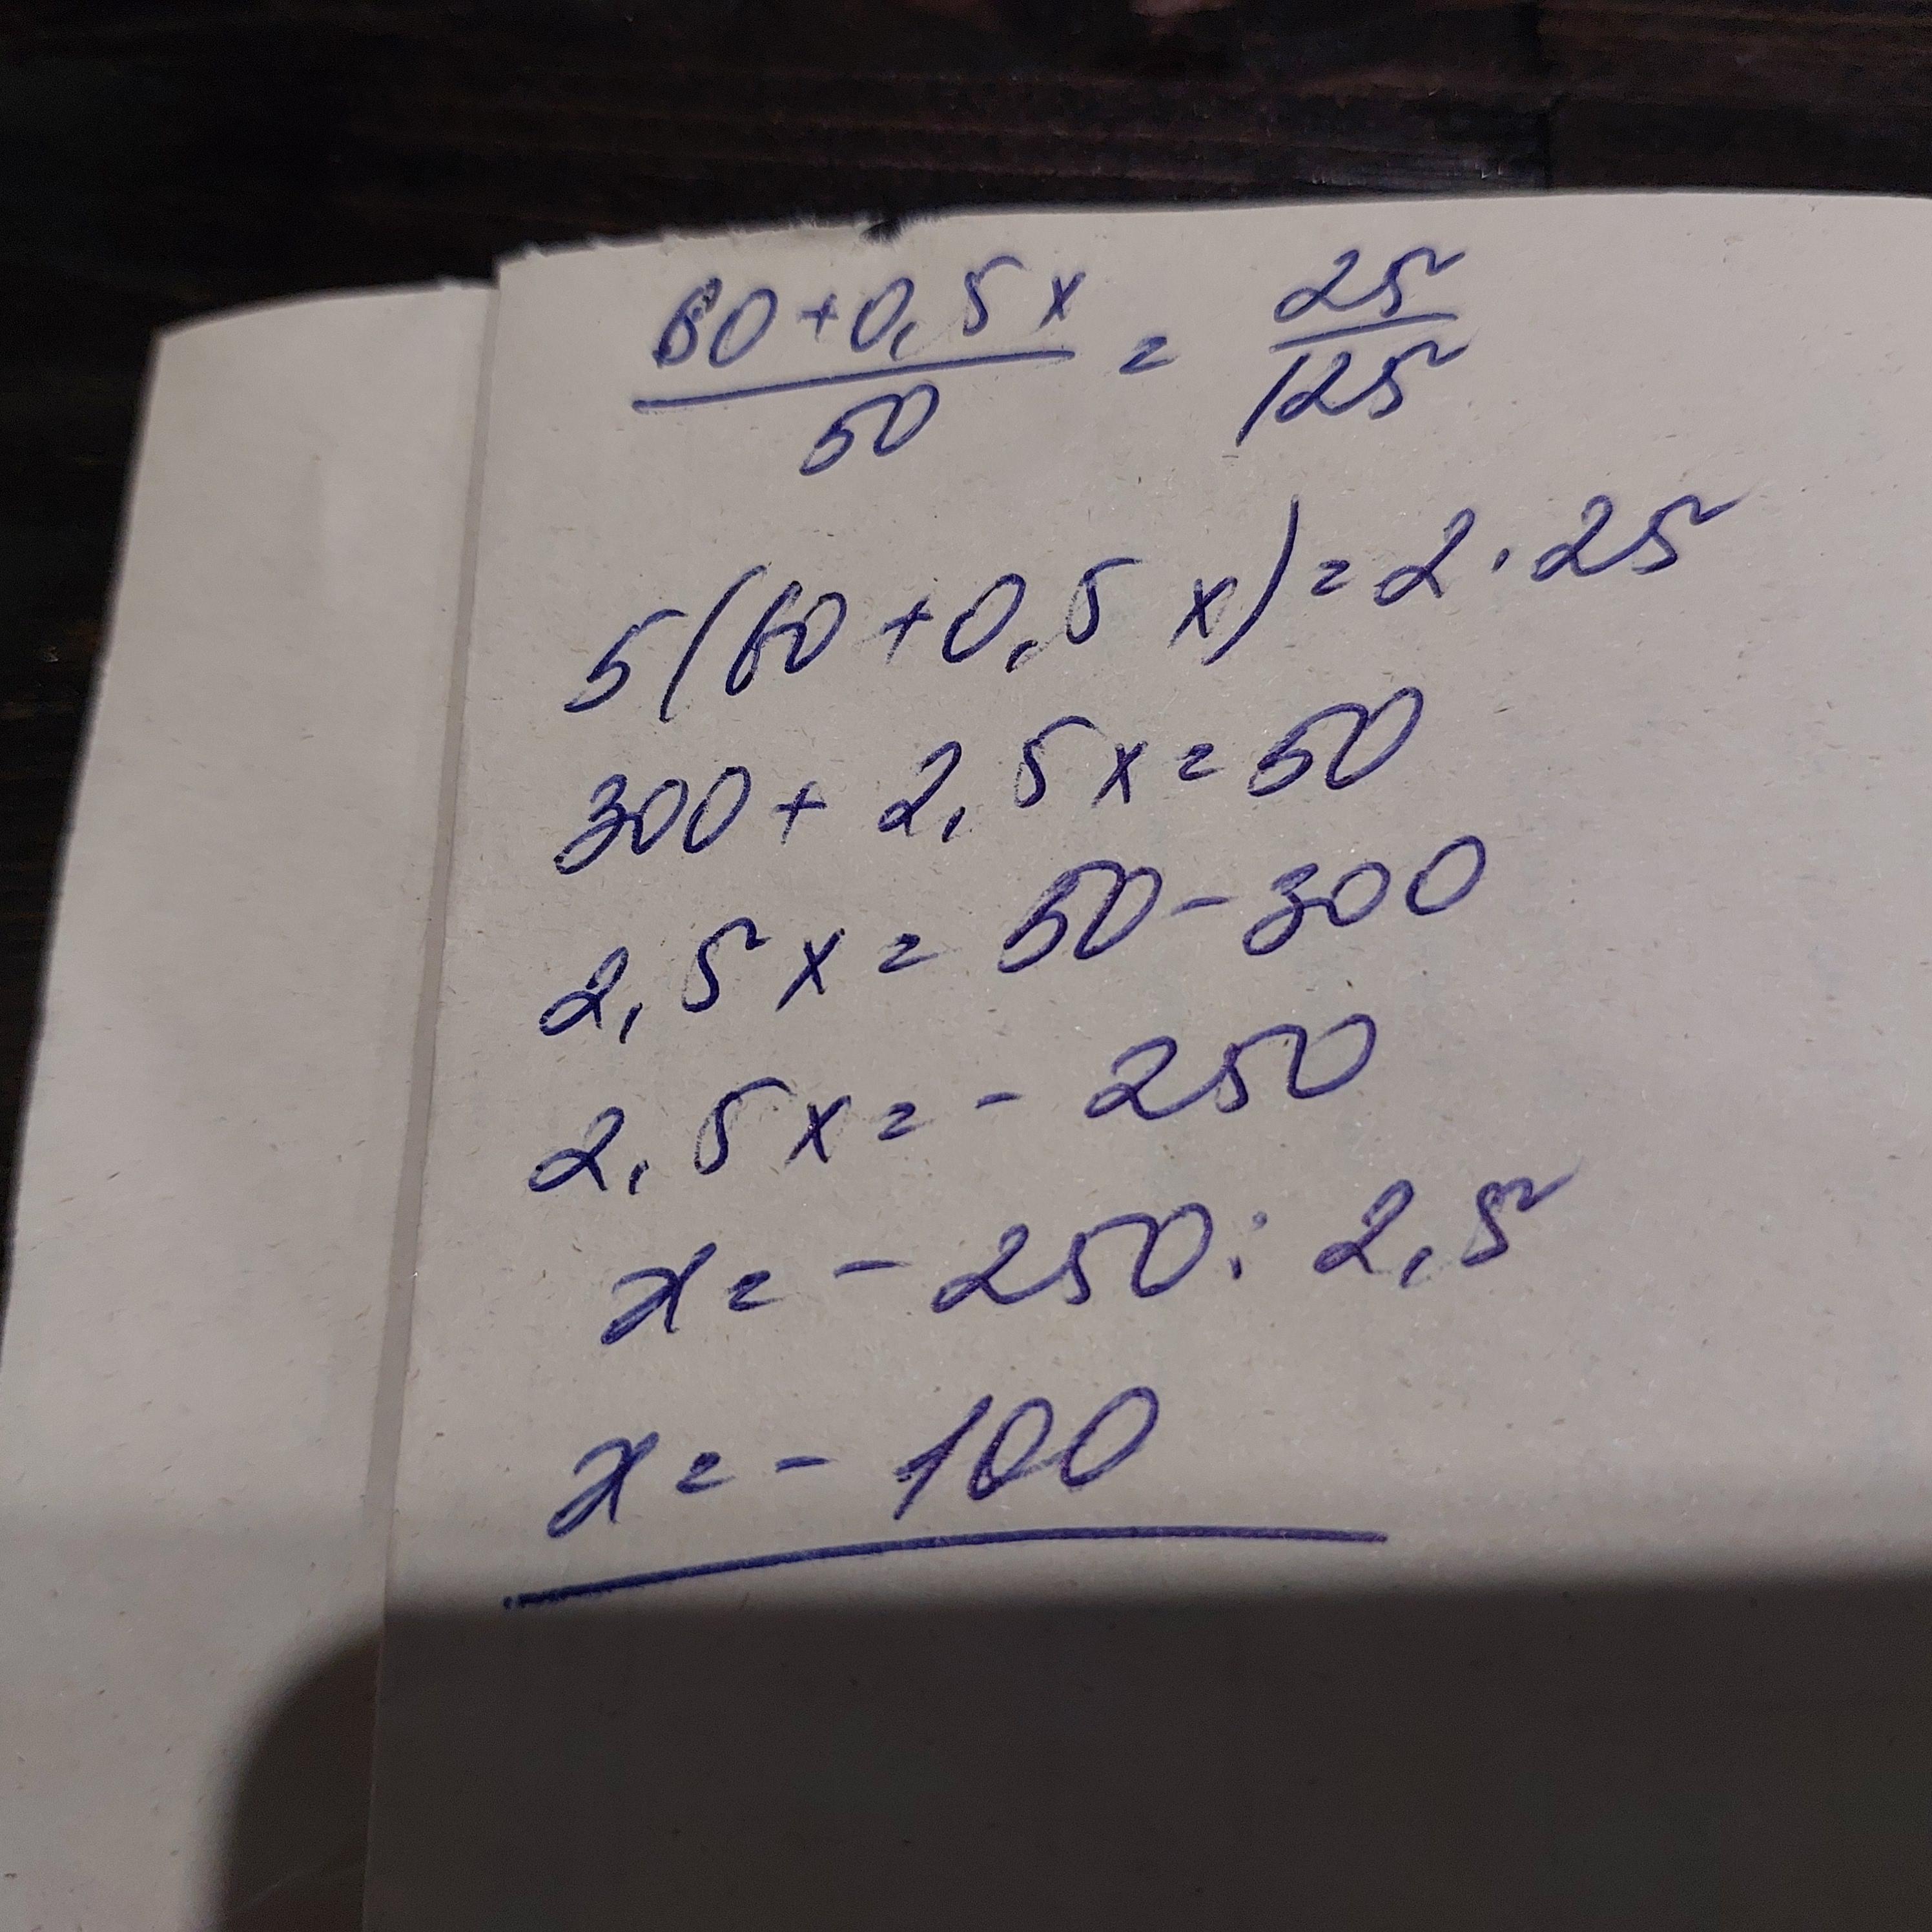 60+0,5x/50 = 25/125
5(60+0,5x)=2·25
300+2,5x=50
2,5x=50-300
2,5x=-250
x=-250:2,5
x=-100